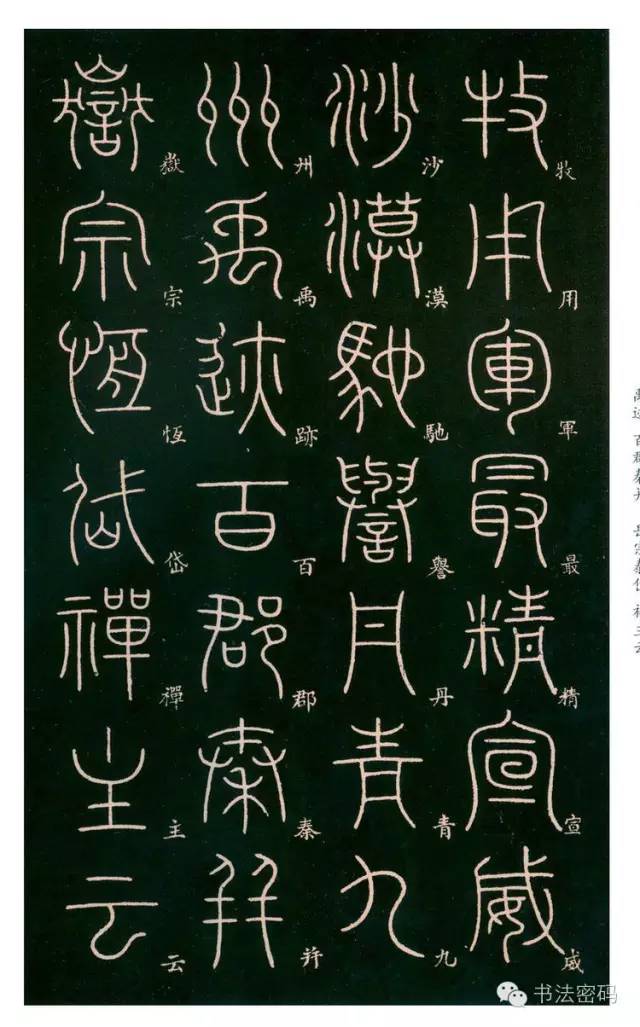 牧用軍最精宣威
沙漠馳譽丹青九
州禹跡百郡秦并
嶽宗恆岱禪主云
书法密码